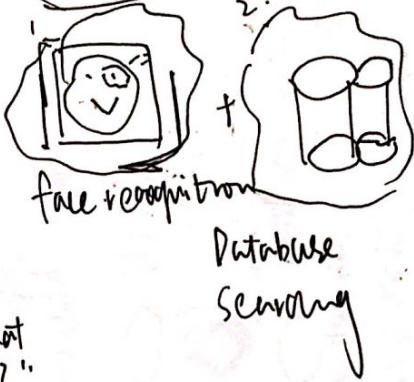 1.
2.
+
face recognition
Database
Searching
at
?"